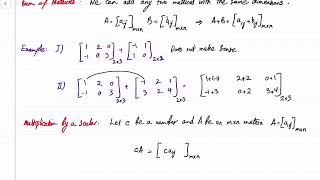 Sum of Matrices : We can add any two matrices with the same dimensions.
A = [aij]m×n B = [bij]m×n → A+B = [aij + bij]m×n
Example: I) [1 2 0; -1 0 3]2×3 + [-1 1; 1 0]2×2 Does not make sense.
II) [1 2 0; -1 0 3]2×3 + [-1 2 1; 3 2 4]2×3 = [1+(-1) 2+2 0+1; -1+3 0+2 3+4]2×3
Multiplication by a Scalar: Let c be a number and A be an m×n matrix A = [aij]m×n
cA = [c aij]m×n